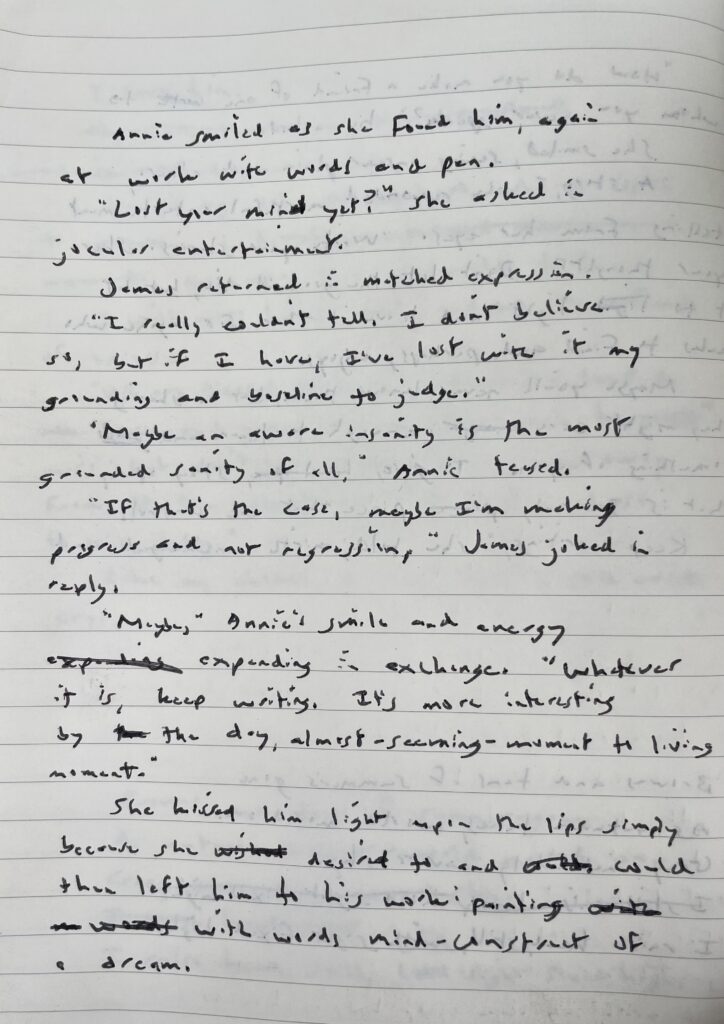 Annie smiled as she found him, again
at work with words and pen.
"Lost your mind yet?" she asked in
jocular entertainment.
James returned in matched expression.
"I really couldn't tell. I don't believe
so, but if I have, I've lost with it my
grounding and baseline to judge."
"Maybe an aware insanity is the most
grounded sanity of all," Annie teased.
"If that's the case, maybe I'm making
progress and not regression," James joked in
reply.
"Maybe," Annie's smile and energy
expanding in exchange. "Whatever
it is, keep writing. It's more interesting
by the day, almost-seeming-moment to living
moment."
She kissed him light upon the lips simply
because she desired to and could
then left him to his work: painting
with words mind-construct of
a dream.